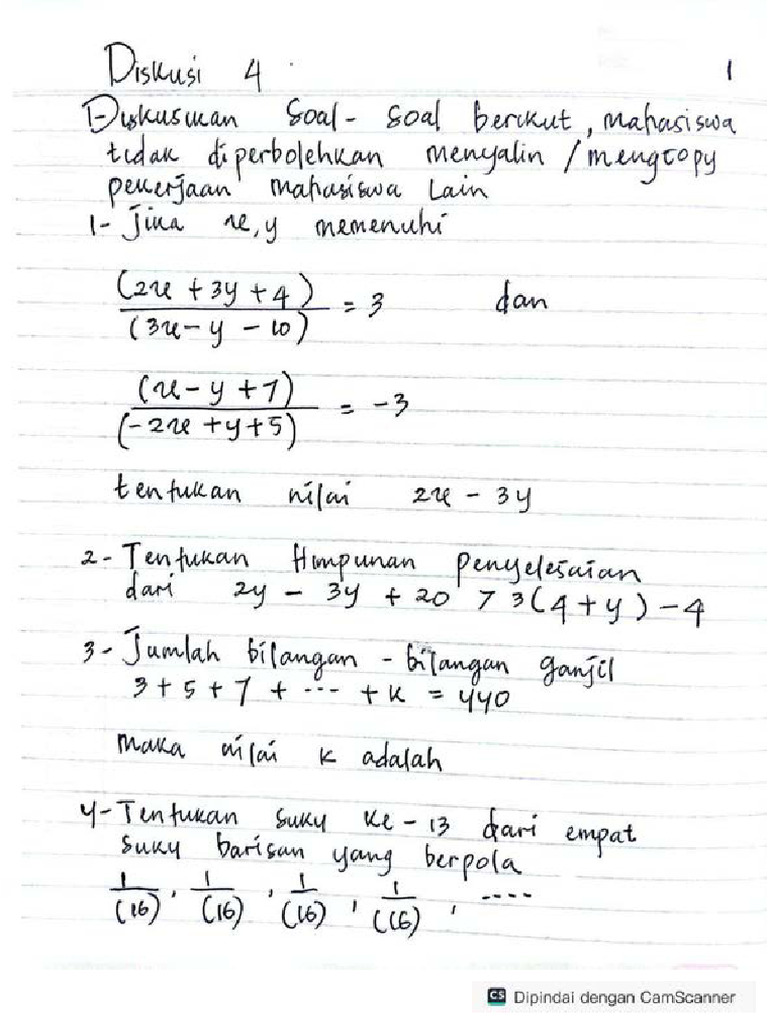 Diskusi 4
1
1- Diskusikan Soal - soal berikut, mahasiswa
tidak diperbolehkan menyalin / mengcopy
pekerjaan mahasiswa Lain
1- Jika x, y memenuhi
(2x + 3y + 4) / (3x - y - 10) = 3 dan
(x - y + 7) / (-2x + y + 5) = -3
tentukan nilai 2x - 3y
2- Tentukan Himpunan Penyelesaian
dari 2y - 3y + 20 > 3(4 + y) - 4
3- Jumlah bilangan - bilangan ganjil
3 + 5 + 7 + ... + k = 440
maka nilai k adalah
4- Tentukan suku ke - 13 dari empat
suku barisan yang berpola
1/(16), 1/(16), 1/(16), 1/(16), ....
CS Dipindai dengan CamScanner